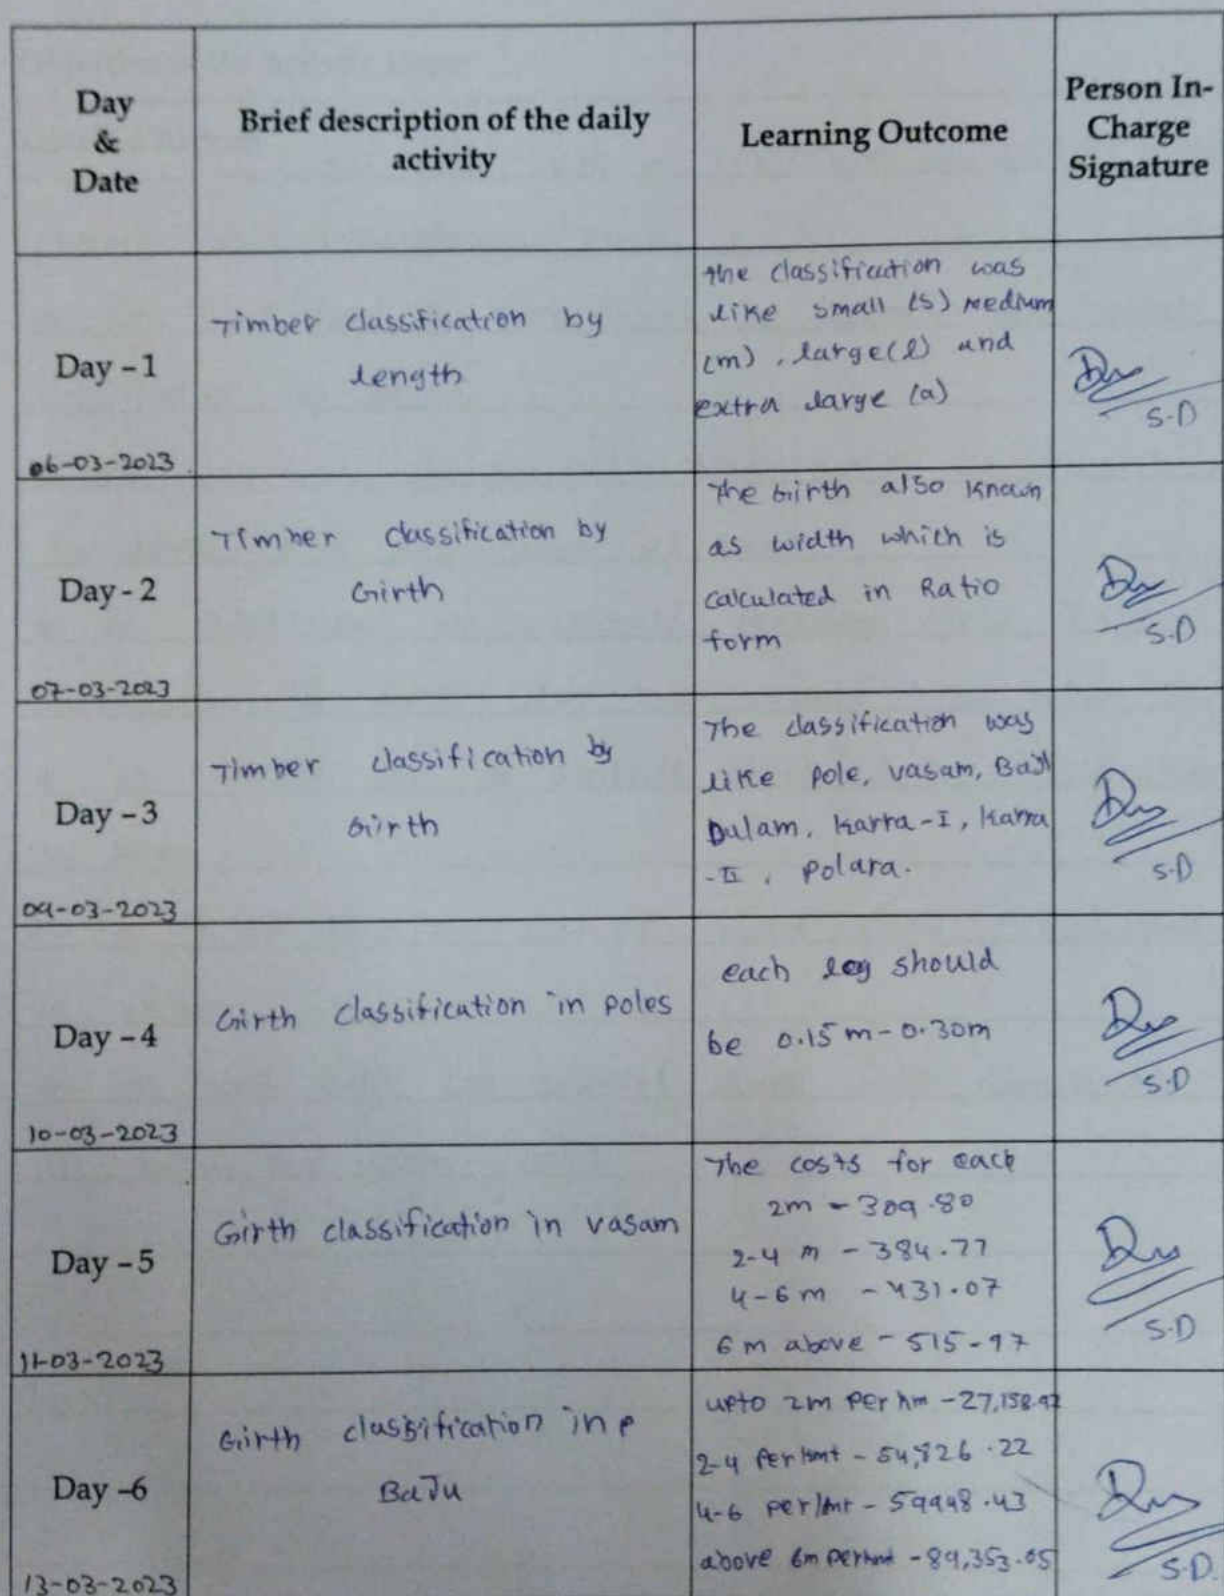 Day
&
Date
Brief description of the daily
activity
Learning Outcome
Person In-
Charge
Signature
Day - 1
06-03-2023
Timber classification by
length
the classification was
like small (s) medium
(m), large(l) and
extra large (a)
S.D
Day - 2
07-03-2023
Timber classification by
Girth
The Girth also known
as width which is
calculated in Ratio
form
S.D
Day - 3
09-03-2023
Timber classification by
Girth
The classification was
like pole, vasam, Baju
Dulam, karra-I, karra
-II, polara.
S.D
Day - 4
10-03-2023
Girth classification in poles
each log should
be 0.15 m - 0.30m
S.D
Day - 5
11-03-2023
Girth classification in vasam
The costs for each
2m - 309.80
2-4 m - 384.77
4-6 m - 431.07
6 m above - 515-97
S.D
Day -6
13-03-2023
Girth classification in
BaJu
upto 2m per - 27,158.92
2-4 - 54,826.22
4-6 - 59948.43
above 6m - 89,353.05
S.D.